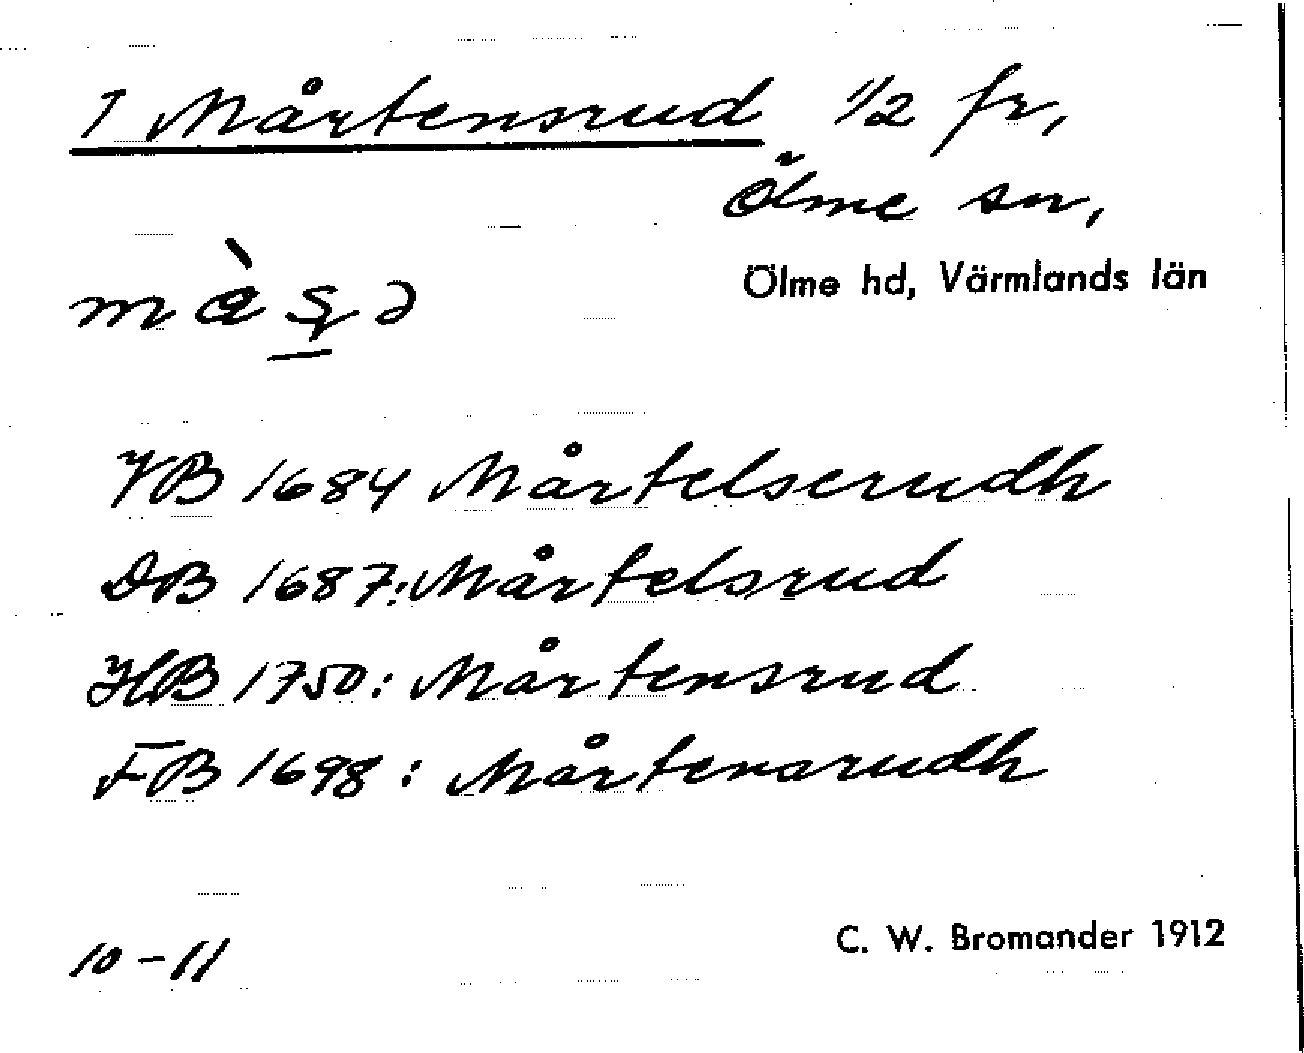 1 Mårtensrud 1/2 fr,
Ölme sn,
Ölme hd, Värmlands län
VB 1684 Mårtelserudh
DB 1687: Mårtelsrud
HB 1750: Mårtensrud
FB 1698: Mårtensrudh
10-11
C. W. Bromander 1912